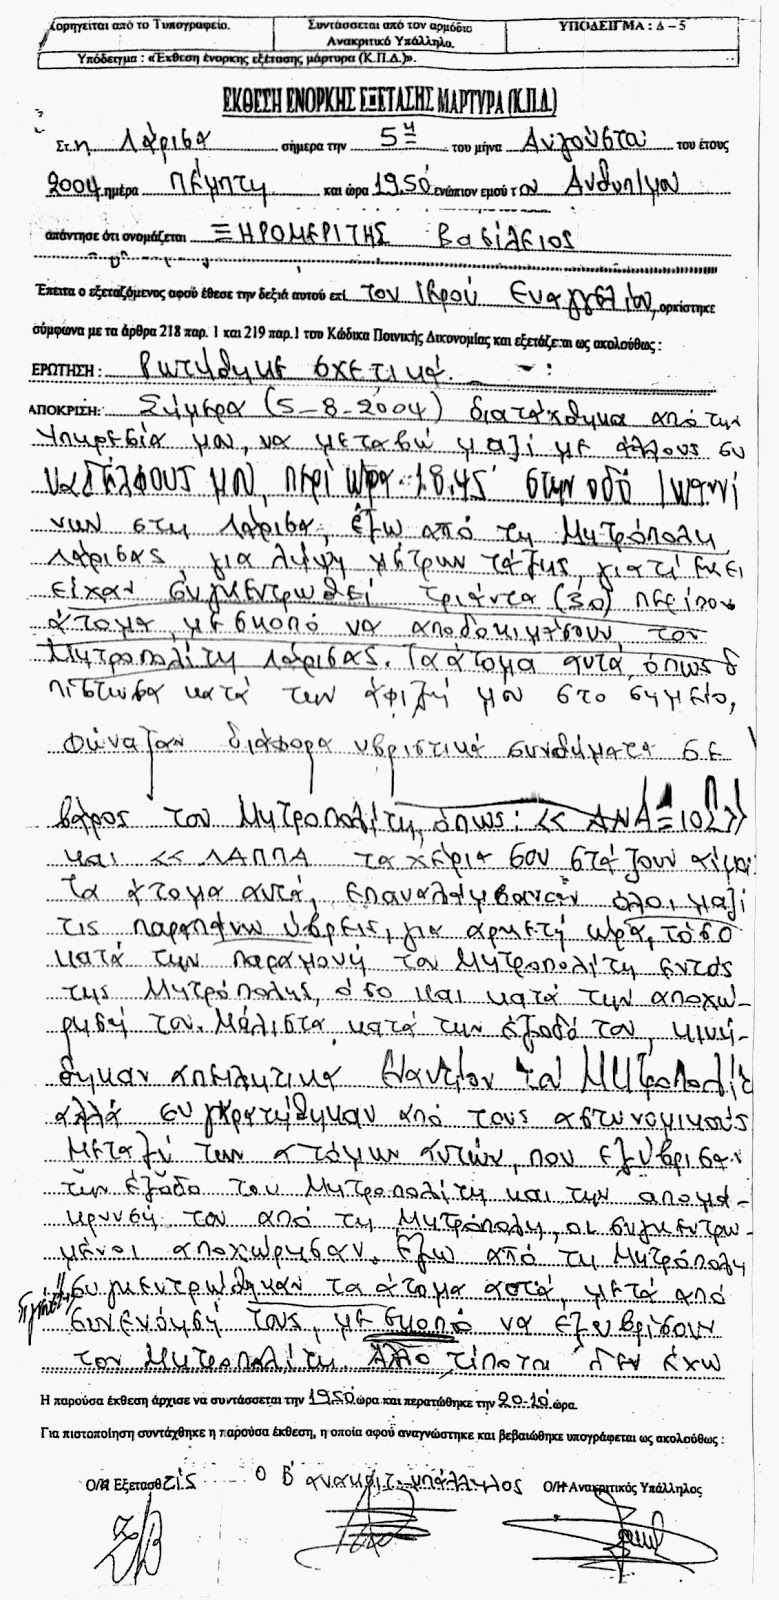 Χορηγείται από το Τυπογραφείο.
Συντάσσεται από τον αρμόδιο
Ανακριτικό Υπάλληλο.
ΥΠΟΔΕΙΓΜΑ : Δ – 5
Υπόδειγμα : «Έκθεση ένορκης εξέτασης μάρτυρα (Κ.Π.Δ.)».
ΕΚΘΕΣΗ ΕΝΟΡΚΗΣ ΕΞΕΤΑΣΗΣ ΜΑΡΤΥΡΑ (Κ.Π.Δ.)
Στ.η Λάρισα σήμερα την 5η του μήνα Αυγούστου του έτους
2004 ημέρα Πέμπτη και ώρα 19.50 ενώπιον εμού τ ου Ανθυπ/μου
απάντησε ότι ονομάζεται ΞΗΡΟΜΕΡΙΤΗΣ Βασίλειος
Έπειτα ο εξεταζόμενος αφού έθεσε την δεξιά αυτού επί του Ιερού Ευαγγελίου, ορκίστηκε
σύμφωνα με τα άρθρα 218 παρ. 1 και 219 παρ.1 του Κώδικα Ποινικής Δικονομίας και εξετάζεται ως ακολούθως :
ΕΡΩΤΗΣΗ : Ρωτήθηκε σχετικά. :
ΑΠΟΚΡΙΣΗ: Σήμερα (5-8-2004) διατάχθηκα από την
Υπηρεσία μου, να μεταβώ μαζί με άλλους συ
ναδέλφους μου, περί ώρα 18.45' στην οδό Ιωαννί
νων στη Λάρισα, έξω από τη Μητρόπολη
Λάρισας, για λήψη μέτρων τάξης, γιατί εκεί
είχαν συγκεντρωθεί τριάντα (30) περίπου
άτομα, με σκοπό να αποδοκιμάσουν τον
Μητροπολίτη Λάρισας. Τα άτομα αυτά, όπως δ
πίστωσα κατά την άφιξή μου στο σημείο,
φώναζαν διάφορα υβριστικά συνθήματα σε
βάρος του Μητροπολίτη, όπως: << ΑΝΑΞΙΟΣ>>
και << ΛΑΠΠΑ τα χέρια σου στάζουν αίμα
Τα άτομα αυτά, επαναλάμβαναν όλοι μαζί
τις παραπάνω ύβρεις, για αρκετή ώρα, τόσο
κατά την παραμονή του Μητροπολίτη εντός
της Μητρόπολης, όσο και κατά την αποχώ-
ρησή του. Μάλιστα κατά την έξοδό του, κινή-
θηκαν απειλητικά εναντίον του Μητροπολίτ
αλλά συγκρατήθηκαν από τους αστυνομικούς
Μεταξύ των ατόμων αυτών, που εξύβρισαν
την έξοδο του Μητροπολίτη και την απομά-
κρυνσή του από τη Μητρόπολη, οι συγκεντρω-
μένοι αποχώρησαν. Έξω από τη Μητρόπολη
συγκεντρώθηκαν τα άτομα αυτά, μετά από
συνενόησή τους, με σκοπό να εξυβρίσουν
τον Μητροπολίτη. Άλλο τίποτα δεν έχω
Η παρούσα έκθεση άρχισε να συντάσσεται την 19.50 ώρα και περατώθηκε την 20.10 ώρα.
Για πιστοποίηση συντάχθηκε η παρούσα έκθεση, η οποία αφού αναγνώστηκε και βεβαιώθηκε υπογράφεται ως ακολούθως :
Ο/Η Εξετασθείς Ο Β' ανακριτ. υπάλληλος Ο/Η Ανακριτικός Υπάλληλος